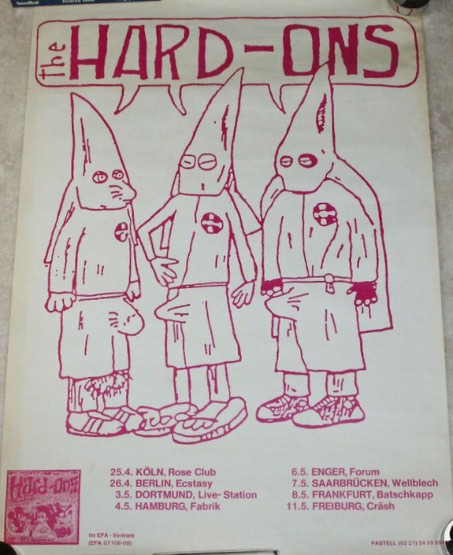 the HARD-ONS
25.4. KÖLN, Rose Club
26.4. BERLIN, Ecstasy
3.5. DORTMUND, Live-Station
4.5. HAMBURG, Fabrik
6.5. ENGER, Forum
7.5. SAARBRÜCKEN, Wellblech
8.5. FRANKFURT, Batschkapp
11.5. FREIBURG, Cräsh
Hard-ons
Im EFA-Vertrieb
PASTELL